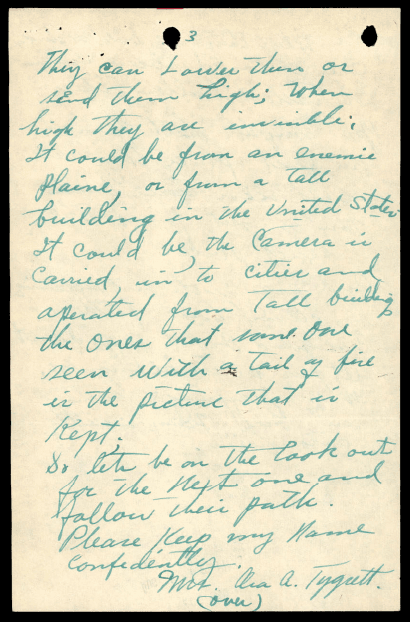 3
They can Lower them or
send them high; When
high they are invisible;
It could be from an enemie
Plaine, or from a tall
building in the United States
It could be, the Camera is
Carried, in to cities and
operated from Tall buildings
the ones that some one
seen with a tail of fire
is the picture that is
Kept.
So lets be on the look out
for the next one and
follow their path.
Please Keep my Name
Confidently.
Mrs. A. Tygrett.
(over)